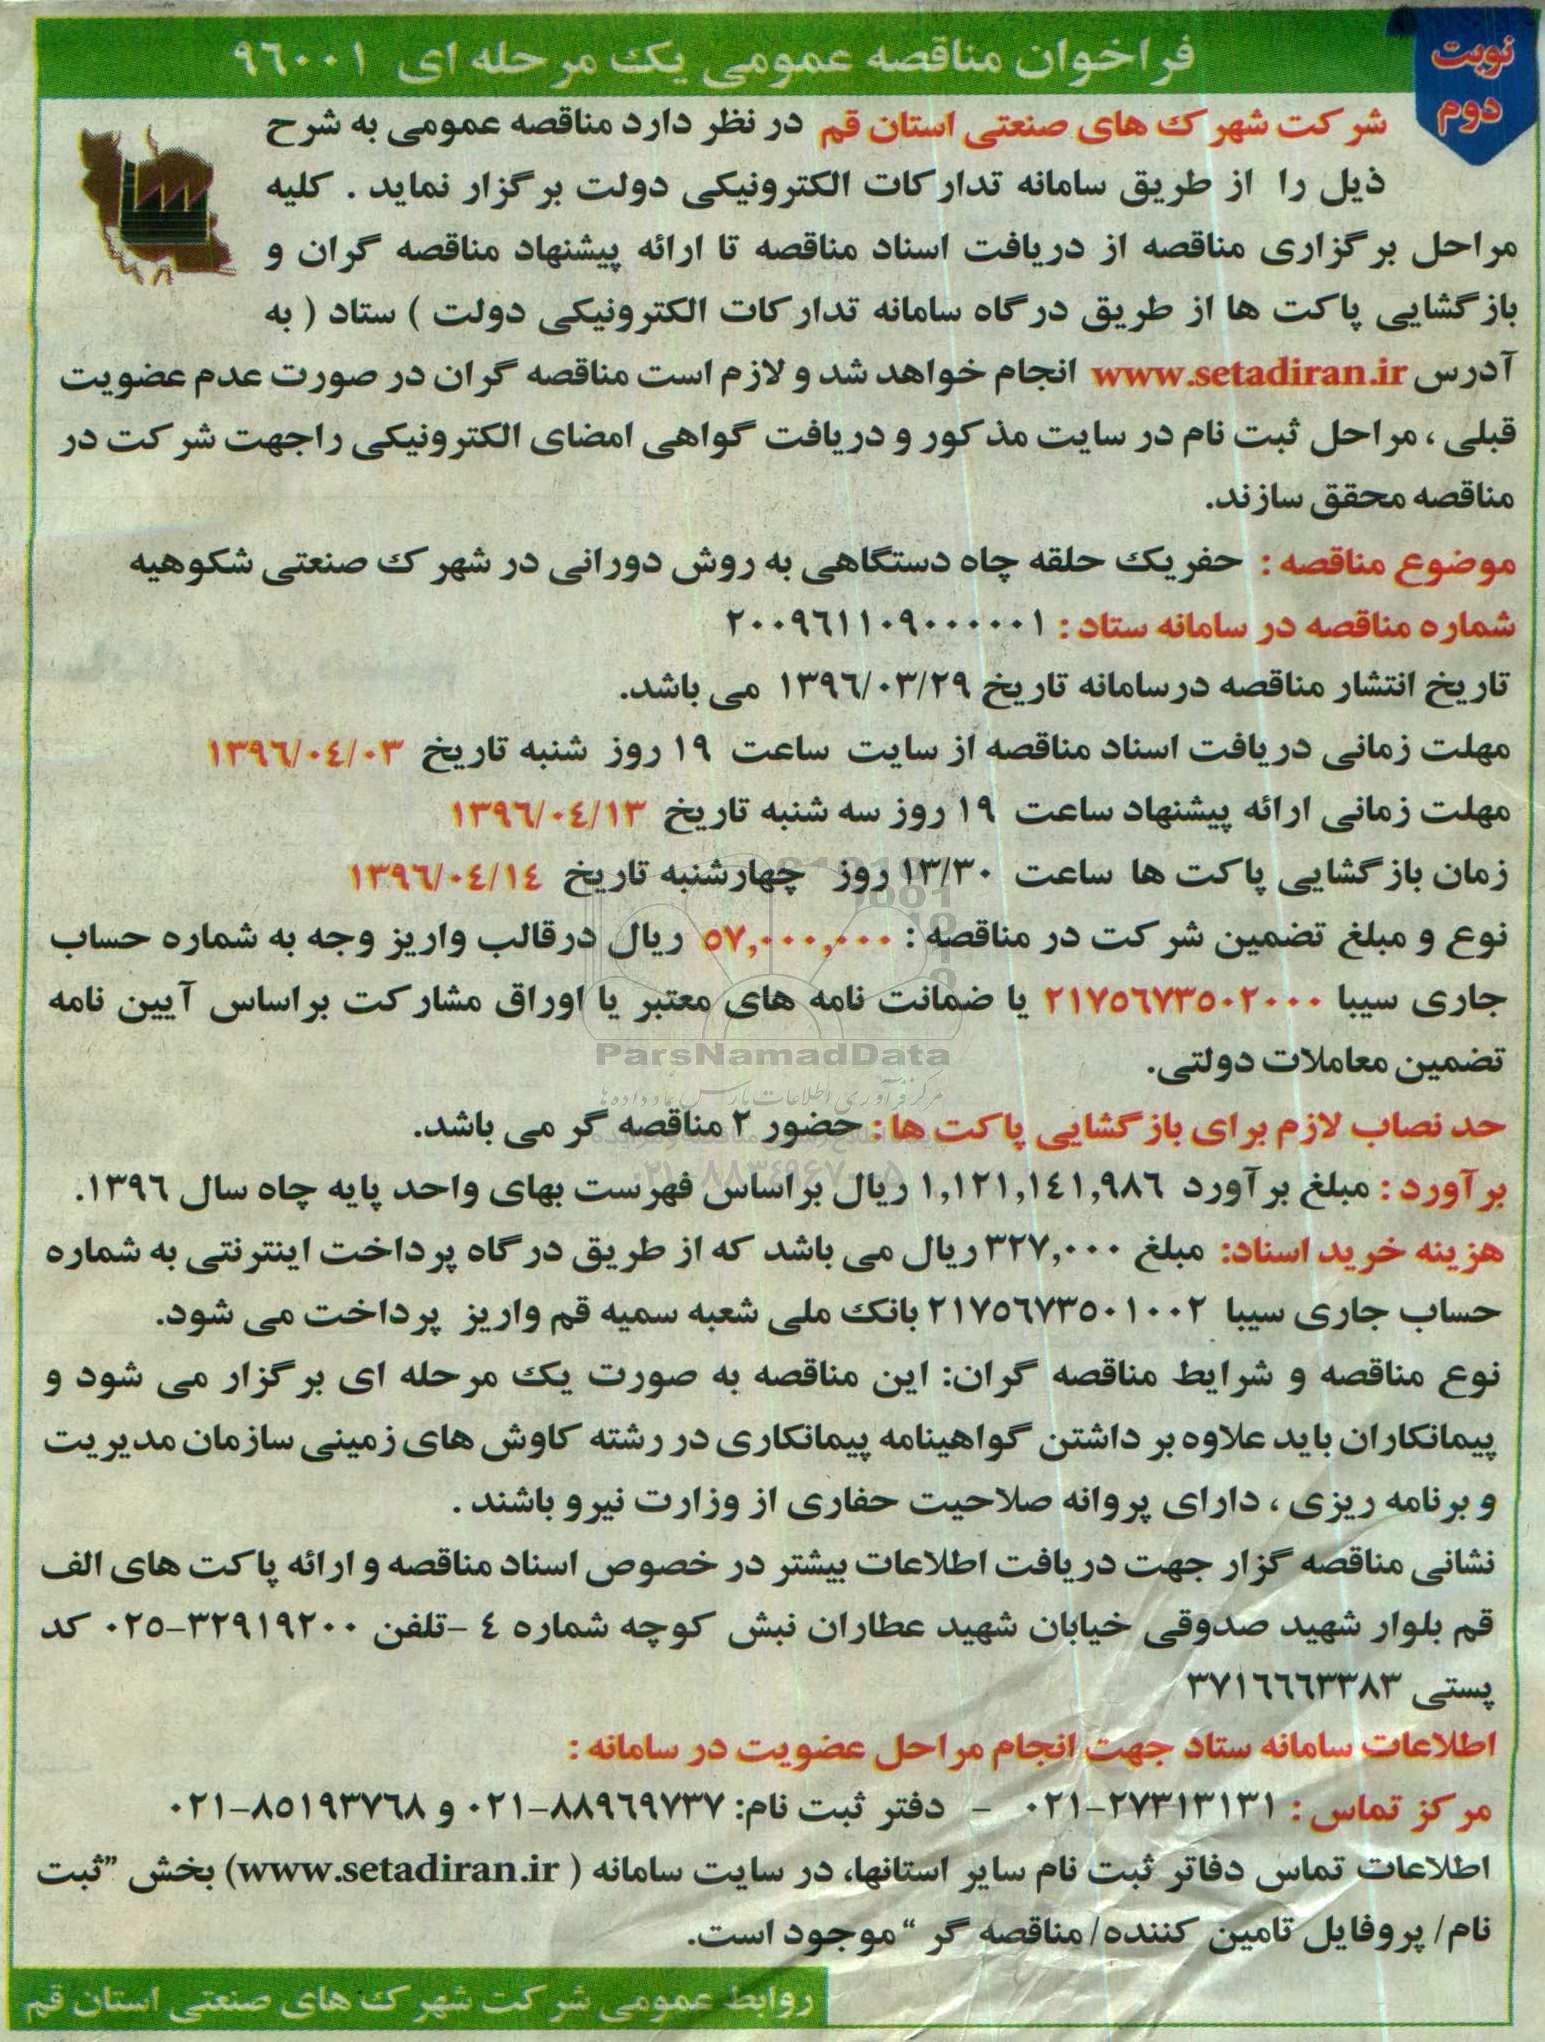 نوبت
دوم
فراخوان مناقصه عمومی یک مرحله ای ۹۶۰۰۱
شرکت شهرک های صنعتی استان قم در نظر دارد مناقصه عمومی به شرح
ذیل را از طریق سامانه تدارکات الکترونیکی دولت برگزار نماید . کلیه
مراحل برگزاری مناقصه از دریافت اسناد مناقصه تا ارائه پیشنهاد مناقصه گران و
بازگشایی پاکت ها از طریق درگاه سامانه تدارکات الکترونیکی دولت ) ستاد ( به
آدرس www.setadiran.ir انجام خواهد شد و لازم است مناقصه گران در صورت عدم عضویت
قبلی ، مراحل ثبت نام در سایت مذکور و دریافت گواهی امضای الکترونیکی راجهت شرکت در
مناقصه محقق سازند.
موضوع مناقصه : حفریک حلقه چاه دستگاهی به روش دورانی در شهرک صنعتی شکوهیه
شماره مناقصه در سامانه ستاد : ۲۰۰۹۶۱۱۰۹۰۰۰۰۰۱
تاریخ انتشار مناقصه درسامانه تاریخ ۱۳۹۶/۰۳/۲۹ می باشد.
مهلت زمانی دریافت اسناد مناقصه از سایت ساعت ۱۹ روز شنبه تاریخ ۱۳۹۶/۰۴/۰۳
مهلت زمانی ارائه پیشنهاد ساعت ۱۹ روز سه شنبه تاریخ ۱۳۹۶/۰۴/۱۳
زمان بازگشایی پاکت ها ساعت ۱۳/۳۰ روز چهارشنبه تاریخ ۱۳۹۶/۰۴/۱۴
نوع و مبلغ تضمین شرکت در مناقصه : ۵۷,۰۰۰,۰۰۰ ریال درقالب واریز وجه به شماره حساب
جاری سیبا ۲۱۷۵۶۷۳۵۰۲۰۰۰ یا ضمانت نامه های معتبر یا اوراق مشارکت براساس آیین نامه
ParsNamadData
تضمین معاملات دولتی.
مرکز فرآوری اطلاعات پارس نماد داده ها
حد نصاب لازم برای بازگشایی پاکت ها : حضور ۲ مناقصه گر می باشد.
۰۲۱-۸۸۳۴۹۶۷۰-۵
برآورد : مبلغ برآورد ۱,۱۲۱,۱۴۱,۹۸۶ ریال براساس فهرست بهای واحد پایه چاه سال ۱۳۹۶.
هزینه خرید اسناد: مبلغ ۳۲۷,۰۰۰ ریال می باشد که از طریق درگاه پرداخت اینترنتی به شماره
حساب جاری سیبا ۲۱۷۵۶۷۳۵۰۱۰۰۲ بانک ملی شعبه سمیه قم واریز پرداخت می شود.
نوع مناقصه و شرایط مناقصه گران: این مناقصه به صورت یک مرحله ای برگزار می شود و
پیمانکاران باید علاوه بر داشتن گواهینامه پیمانکاری در رشته کاوش های زمینی سازمان مدیریت
و برنامه ریزی ، دارای پروانه صلاحیت حفاری از وزارت نیرو باشند .
نشانی مناقصه گزار جهت دریافت اطلاعات بیشتر در خصوص اسناد مناقصه و ارائه پاکت های الف
قم بلوار شهید صدوقی خیابان شهید عطاران نبش کوچه شماره ۴ -تلفن ۳۲۹۱۹۲۰۰-۰۲۵ کد
پستی ۳۷۱۶۶۶۳۳۸۳
اطلاعات سامانه ستاد جهت انجام مراحل عضویت در سامانه :
مرکز تماس : ۲۷۳۱۳۱۳۱-۰۲۱ - دفتر ثبت نام: ۸۸۹۶۹۷۳۷-۰۲۱ و ۸۵۱۹۳۷۶۸-۰۲۱
اطلاعات تماس دفاتر ثبت نام سایر استانها، در سایت سامانه ( www.setadiran.ir) بخش "ثبت
نام/ پروفایل تامین کننده/ مناقصه گر " موجود است.
روابط عمومی شرکت شهرک های صنعتی استان قم